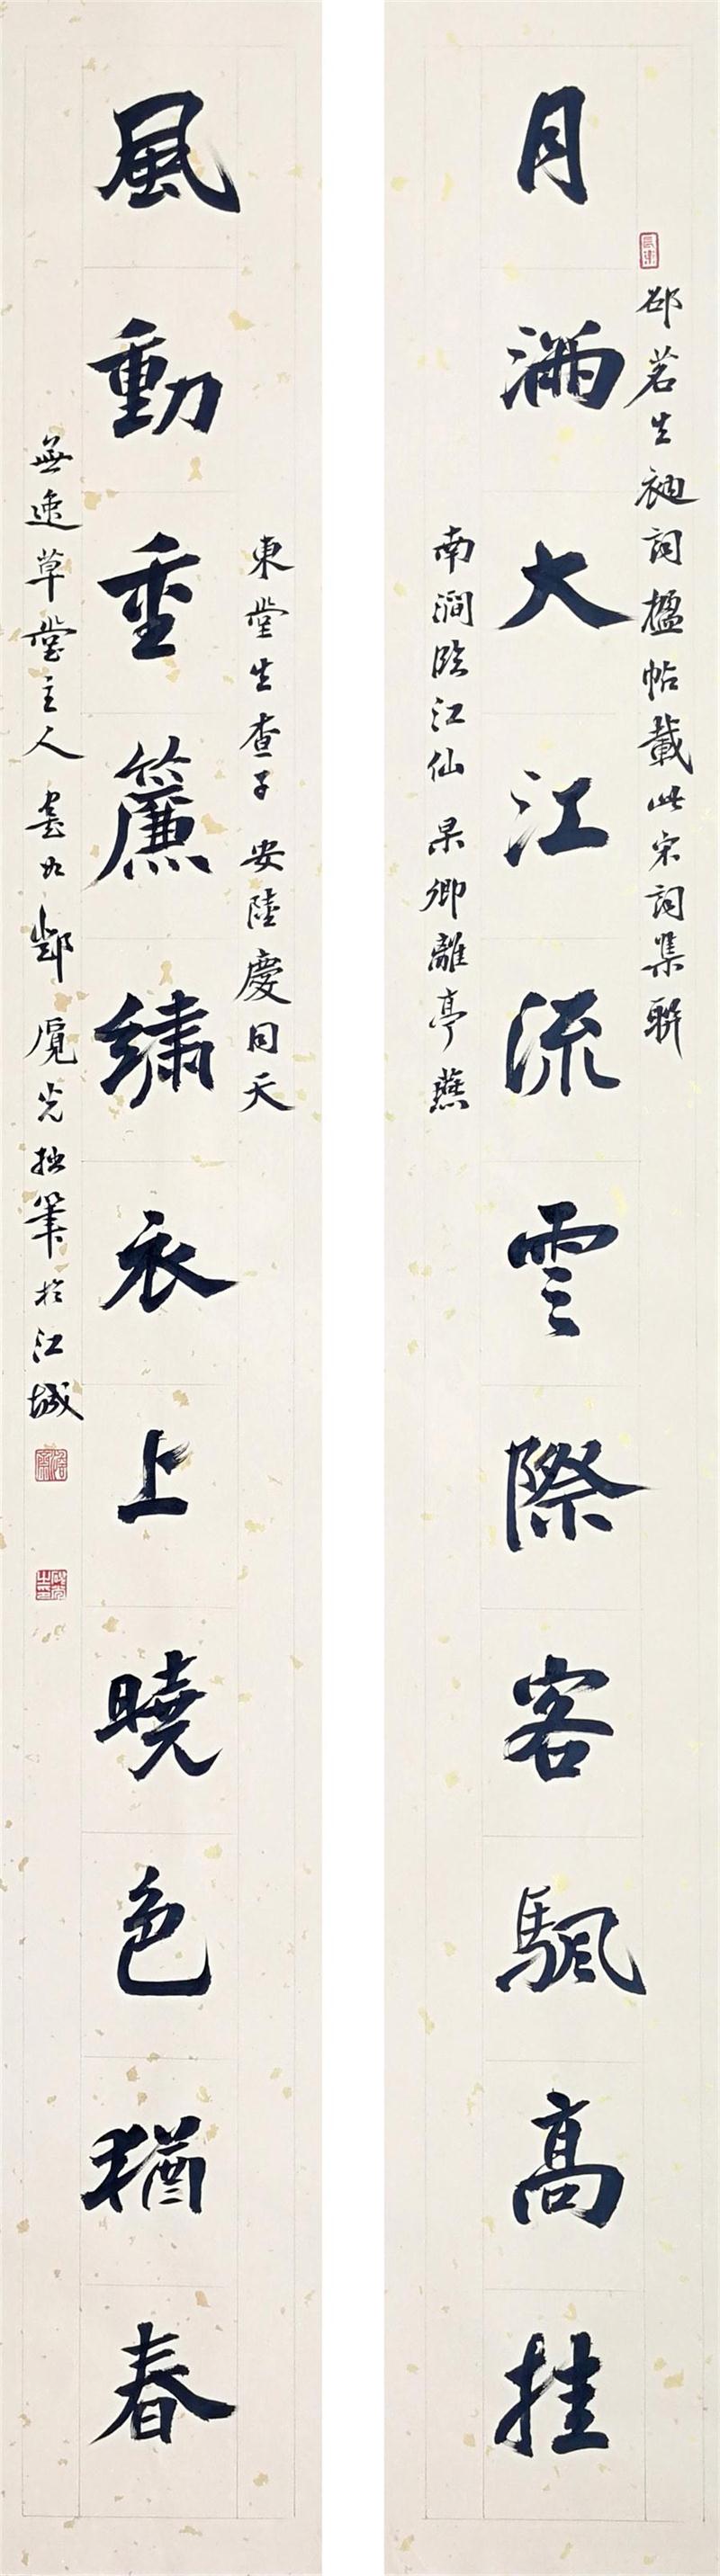 邵茗生衲詞楹帖載此宋詞集聯
月滿大江流雲際客颿高挂
南澗臨江仙 杲卿離亭燕
東堂生查子 安陸慶同天
風動重簾繡衣上曉色猶春
無逸草堂主人 光拙筆於江城